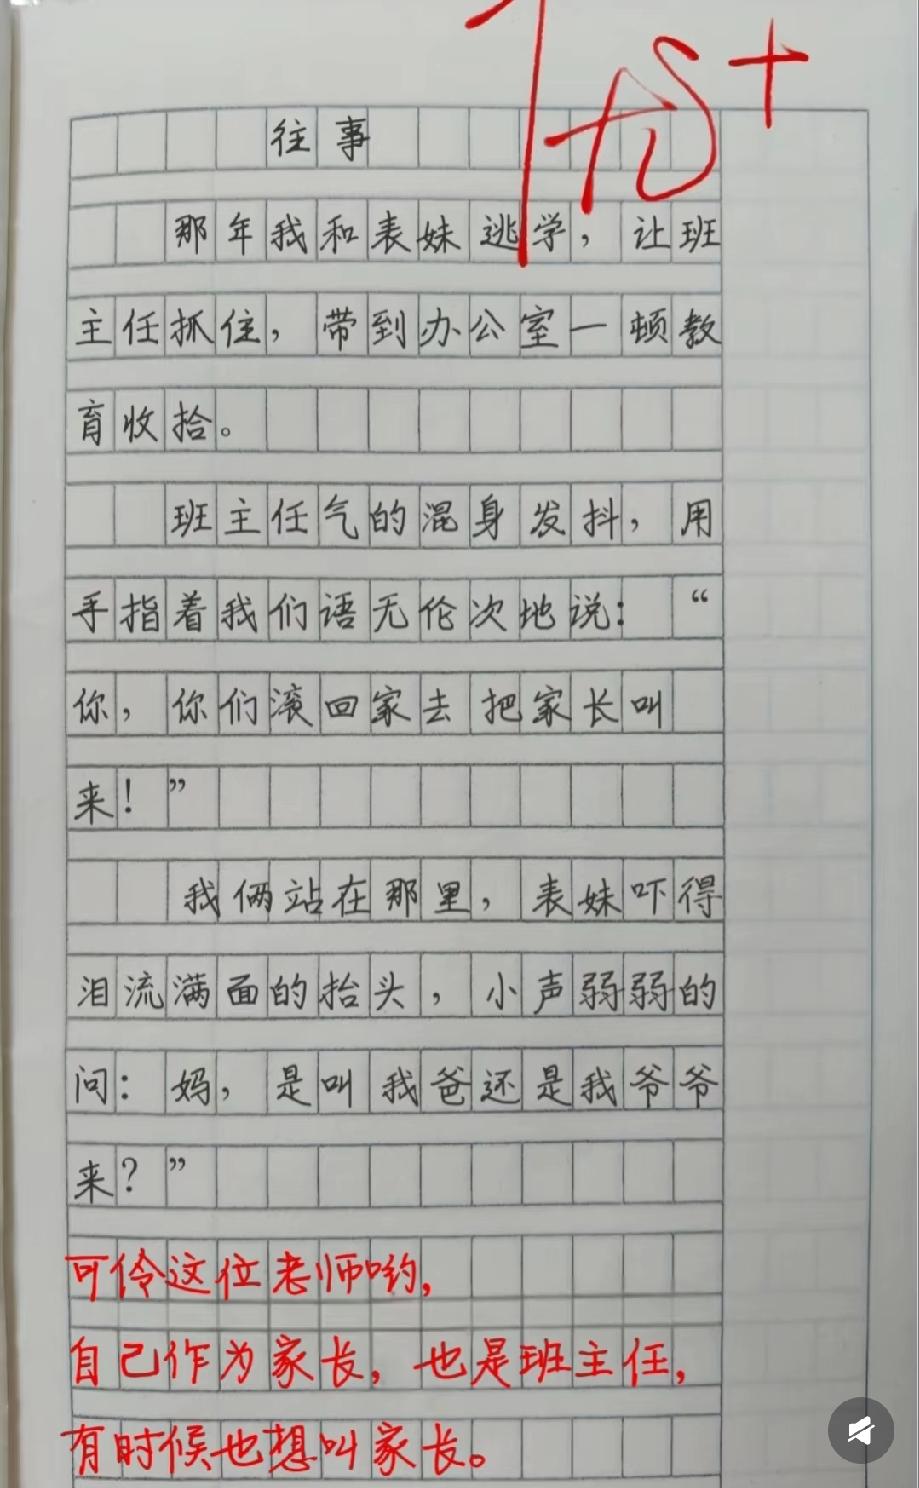 优+
往事
那年我和表妹逃学，让班
主任抓住，带到办公室一顿教
育收拾。
班主任气的混身发抖，用
手指着我们语无伦次地说：“
你，你们滚回家去把家长叫
来！”
我俩站在那里，表妹吓得
泪流满面的抬头，小声弱弱的
问：妈，是叫我爸还是我爷爷
来？”
可伶这位老师哟，
自己作为家长，也是班主任，
有时候也想叫家长。